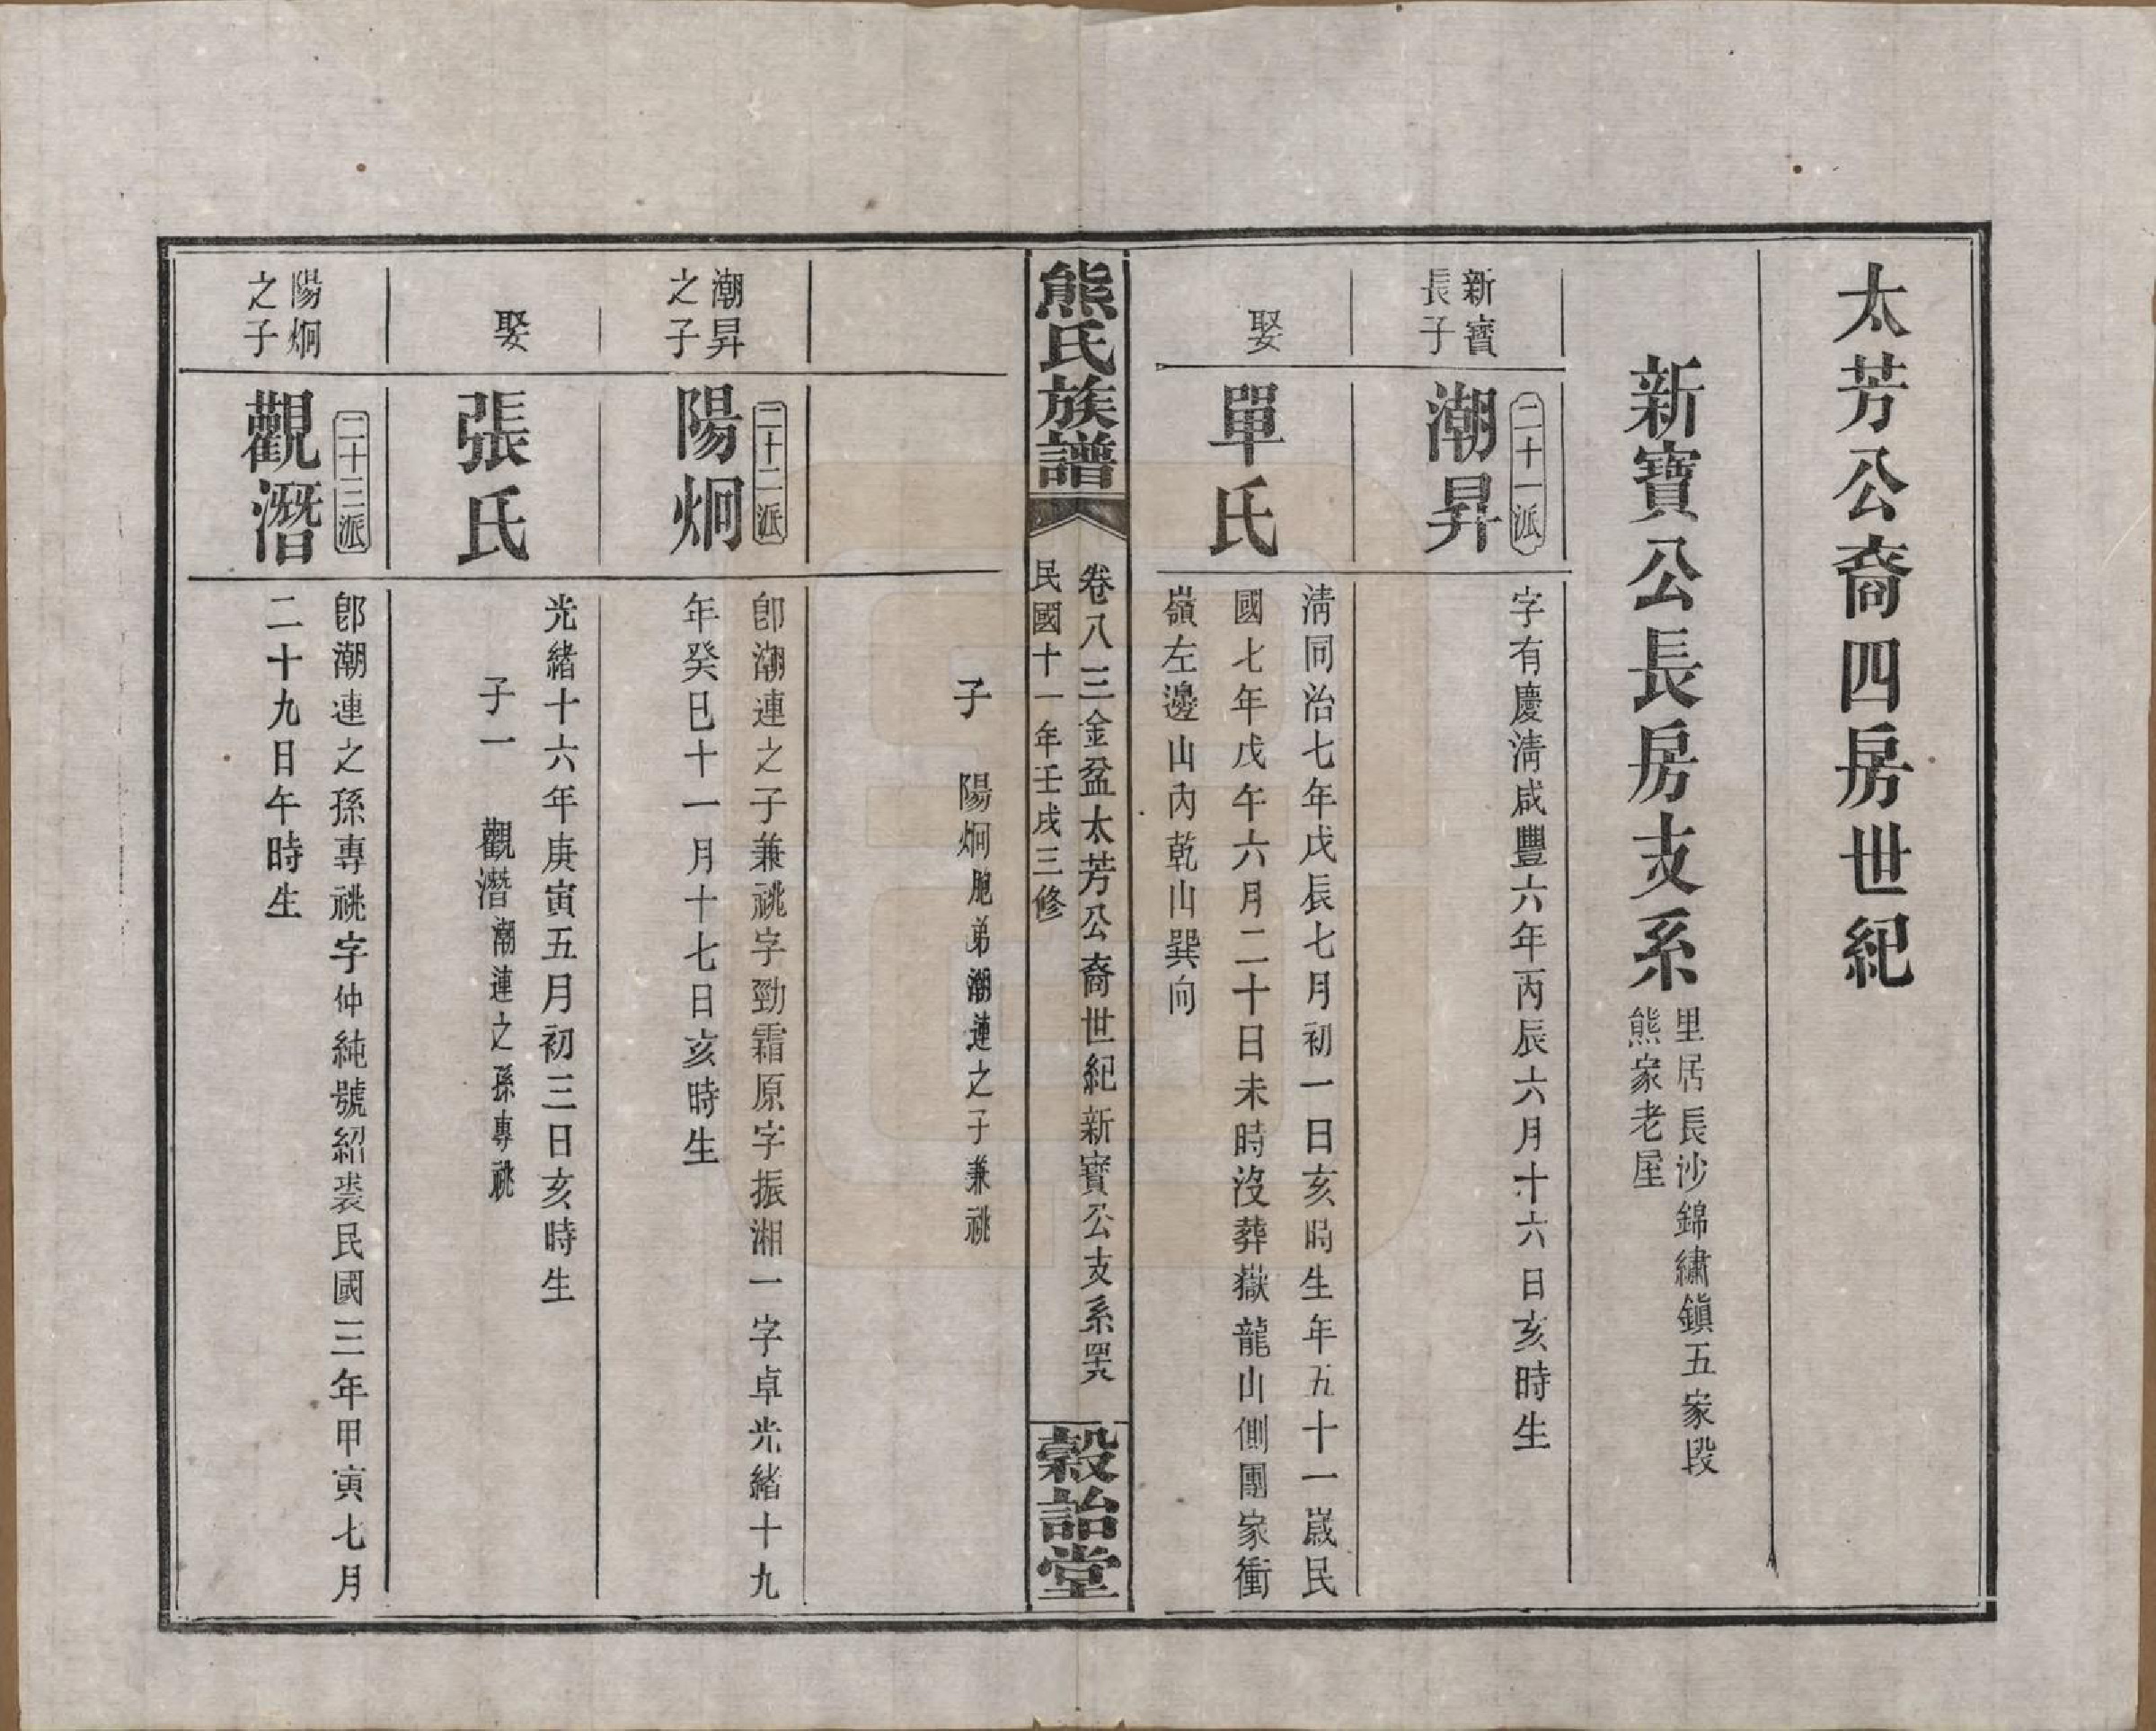 太芳公裔四房世紀
新寶公長房支系
里居長沙錦繡鎮五家段
熊家老屋
新寶
長子
二十一派
潮昇
字有慶淸咸豐六年丙辰六月十六日亥時生
娶
單氏
淸同治七年戊辰七月初一日亥時生年五十一歲民
國七年戊午六月二十日未時沒葬嶽龍山側團家衝
嶺左邊山內乾山巽向
熊氏族譜
卷八三金盆太芳公裔世紀新寶公支系
民國十一年壬戌三修
穀詒堂
子
陽炯胞弟潮連之子兼祧
潮昇
之子
二十二派
陽炯
卽潮連之子兼祧字勁霜原字振湘一字卓光緒十九
年癸巳十一月十七日亥時生
娶
張氏
光緒十六年庚寅五月初三日亥時生
子一
觀潛潮連之孫專祧
陽炯
之子
二十三派
觀潛
卽潮連之孫專祧字仲純號紹裘民國三年甲寅七月
二十九日午時生